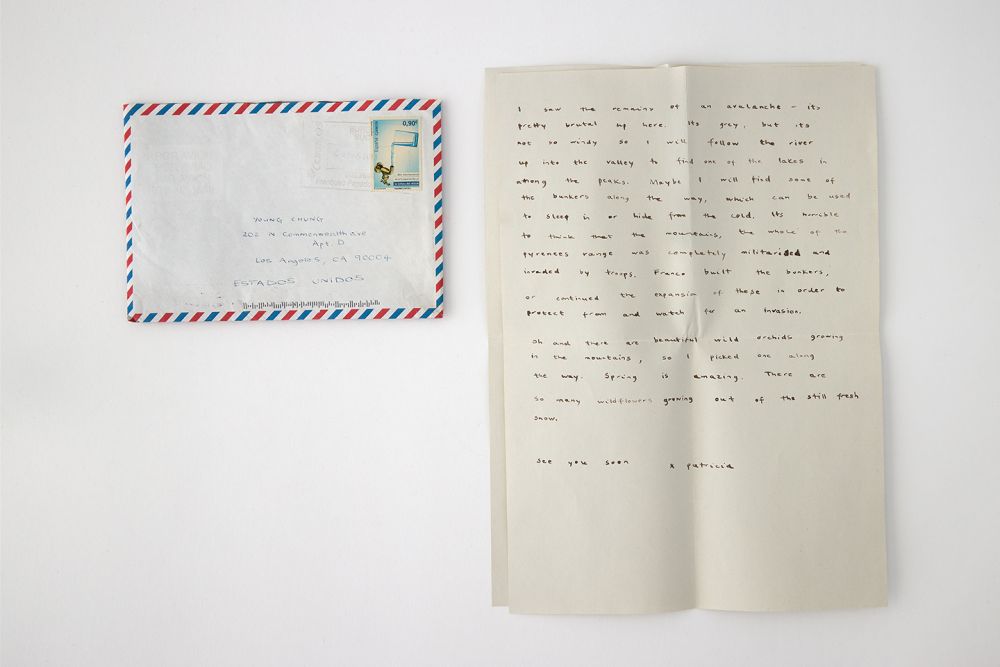 0,90€
YOUNG CHUNG
202 N. Commonwealth ave
Apt. D
Los Angeles, CA 90004
ESTADOS UNIDOS
I saw the remains of an avalanche - its
pretty brutal up here. Its grey, but its
not so windy so I will follow the river
up into the valley to find one of the lakes in
among the peaks. Maybe I will find some of
the bunkers along the way, which can be used
to sleep in or hide from the cold. Its horrible
to think that the mountains, the whole of the
pyrenees range was completely militarided and
invaded by troops. Franco built the bunkers,
or continued the expansion of these in order to
protect from and watch for an invasion.
Oh and there are beautiful wild orchids growing
in the mountains, so I picked one along
the way. Spring is amazing. There are
so many wildflowers growing out of the still fresh
snow.
See you soon x patricia